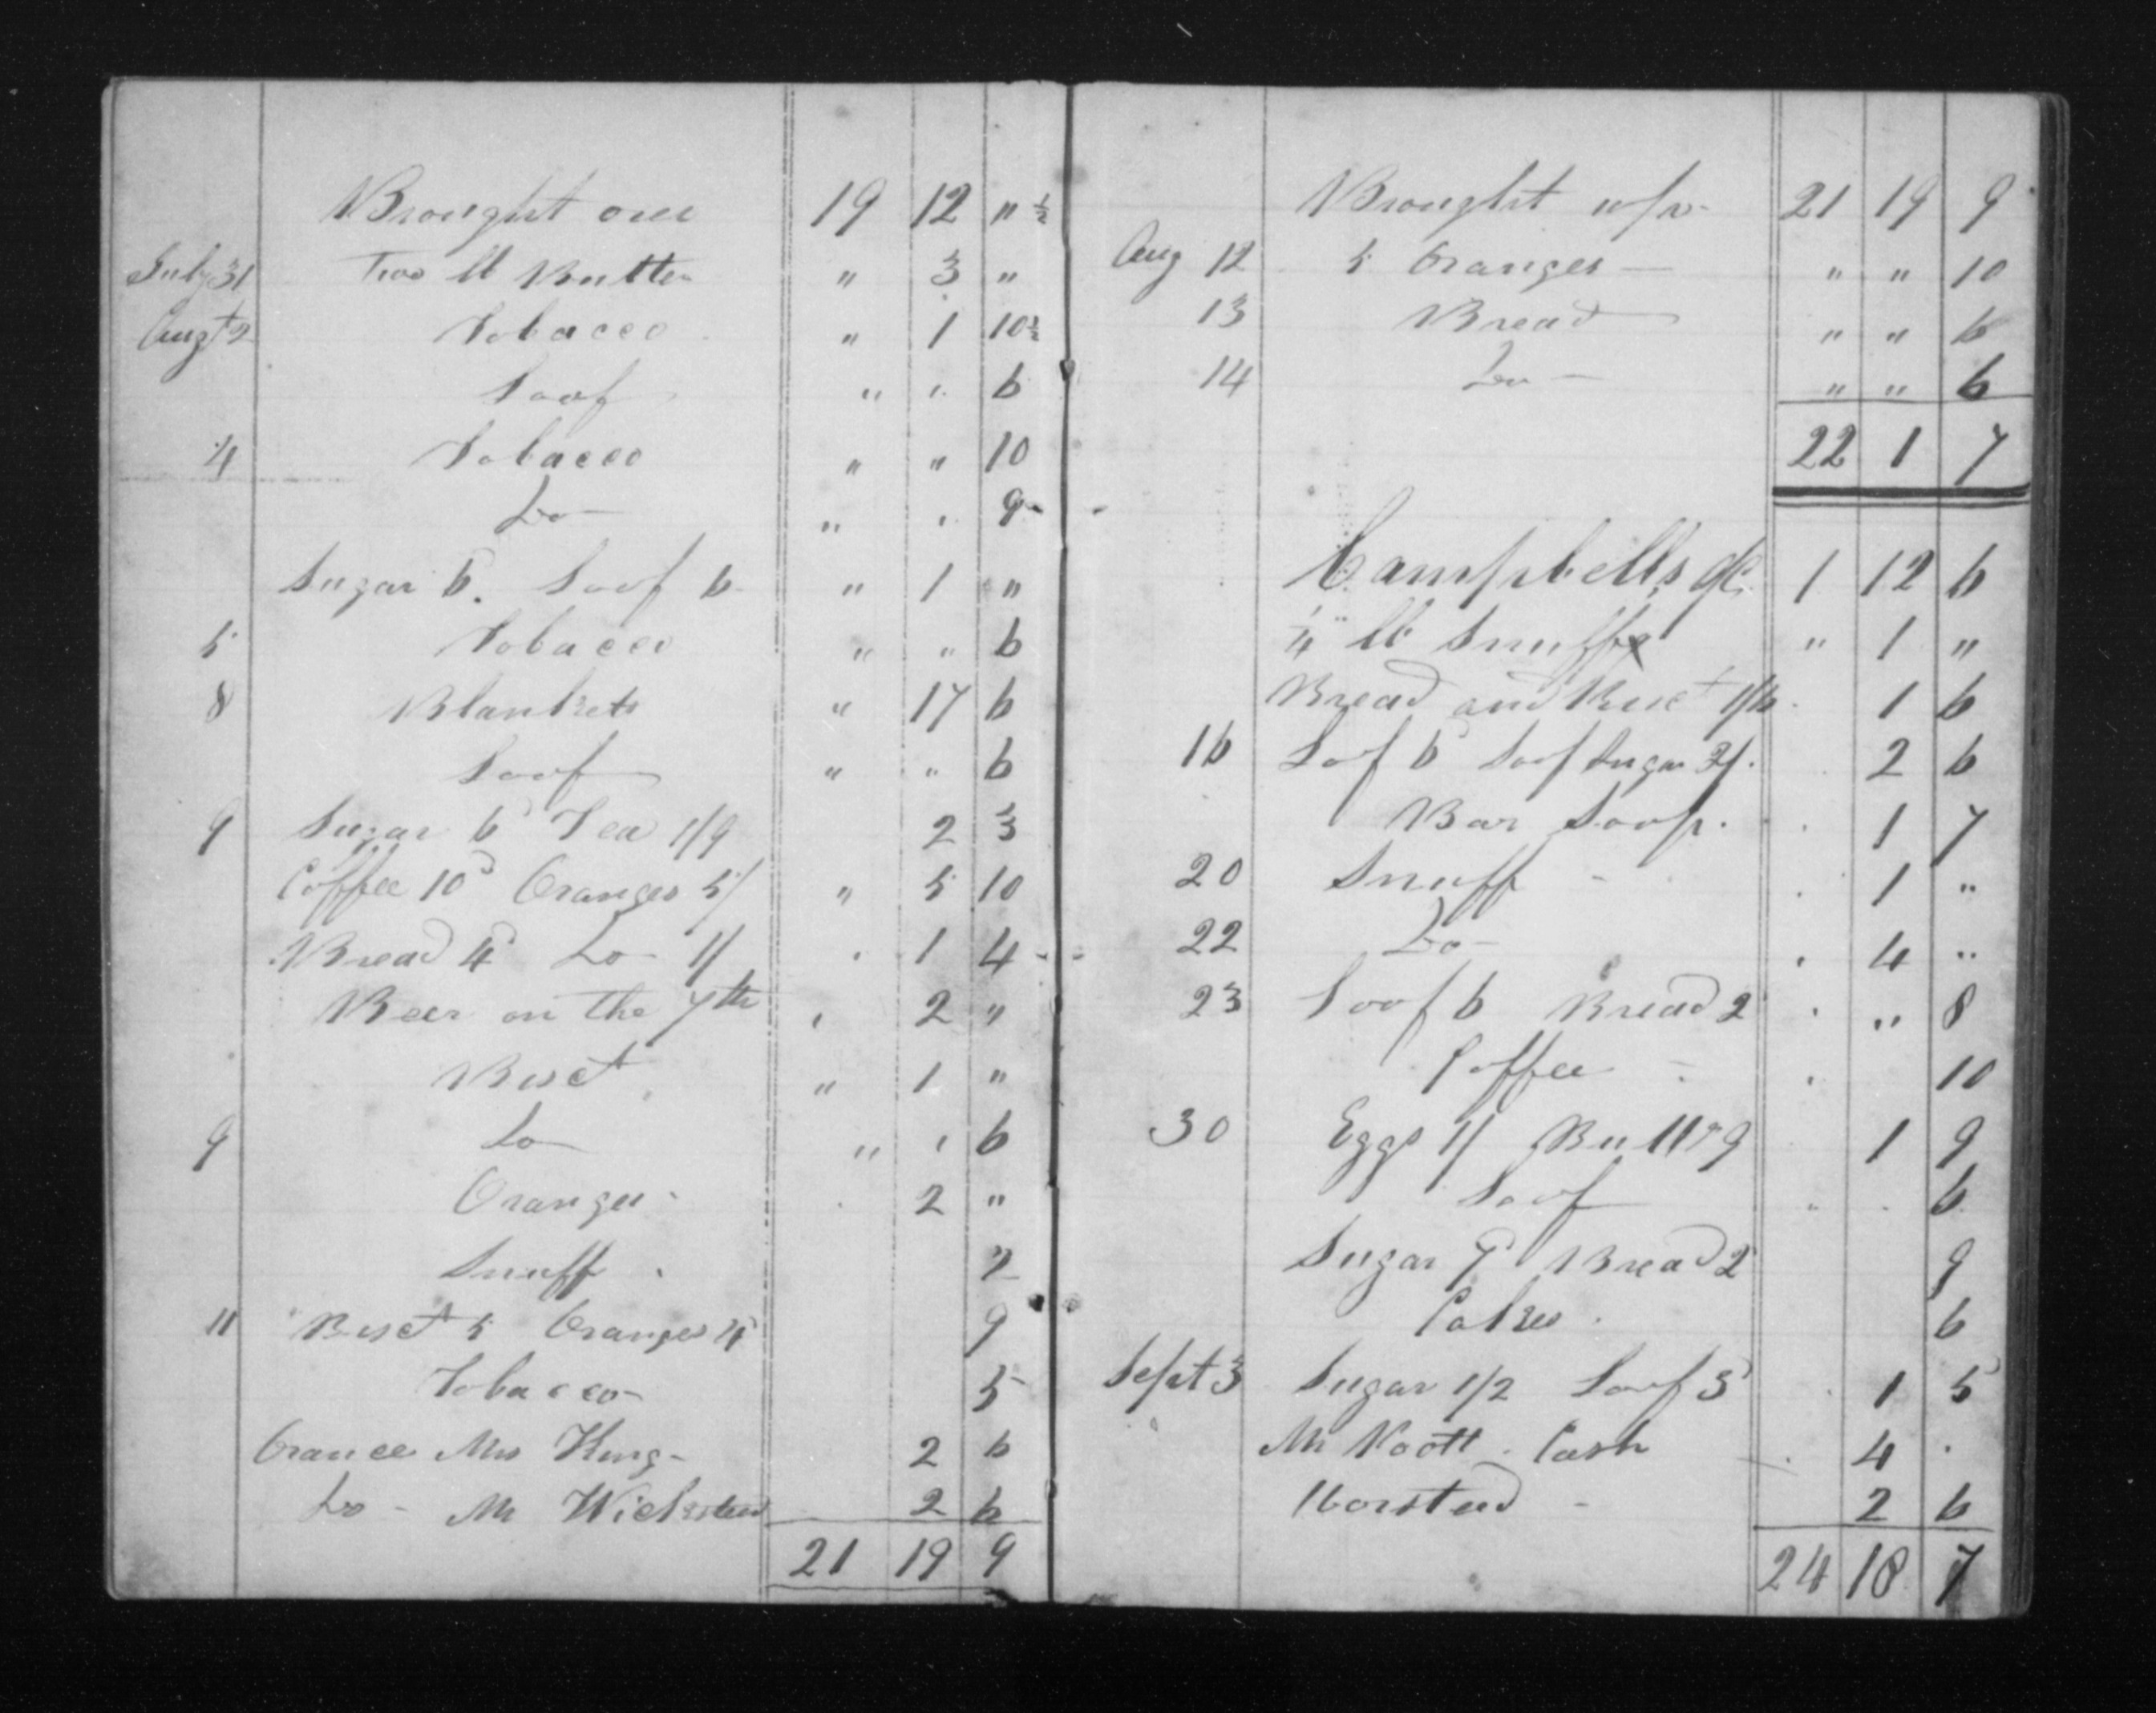 Brought over 19 12 " ½
July 31 Two lb Butter " 3 "
Augt 2 Tobacco " 1 10½
Loaf " " 6
4 Tobacco " " 10
Do " " 9
Sugar 6. Loaf 6 " 1 "
5 Tobacco " " 6
8 Blankets " 17 6
Loaf " " 6
9 Sugar 6d Tea 1/9 2 3
Coffee 10d Oranges 5/ " 5 10
Bread 4d Do 1/ " 1 4
Beer on the 7th " 2 "
Bisct " 1 "
9 Do " " 6
Oranges 2 "
Snuff 2
11 Bisct 5 Oranges 4d 9
Tobacco 5
Orance Mrs King 2 6
Do - Mr 2 6
21 19 9
Brought up 21 19 9
Aug 12 5 Oranges " " 10
13 Bread " " 6
14 Do " " 6
22 1 7
Campbells 1 12 6
¼ lb Snuff " 1 "
Bread and Bisct 1/6 1 6
16 Lof 6d Loaf Sugar 2/. 2 6
Bar Soap. 1 7
20 Snuff 1 "
22 Do 4 "
23 Loof 6 Bread 2 " 8
Coffee 10
30 Eggs 1/ Buttr 9 1 9
Loaf 6
Sugar 7d Bread 2 9
Cakes 6
Sept 3 Sugar 1/2 Loaf 3 1 5
Mr Cash 4
Worsted 2 6
24 18 7